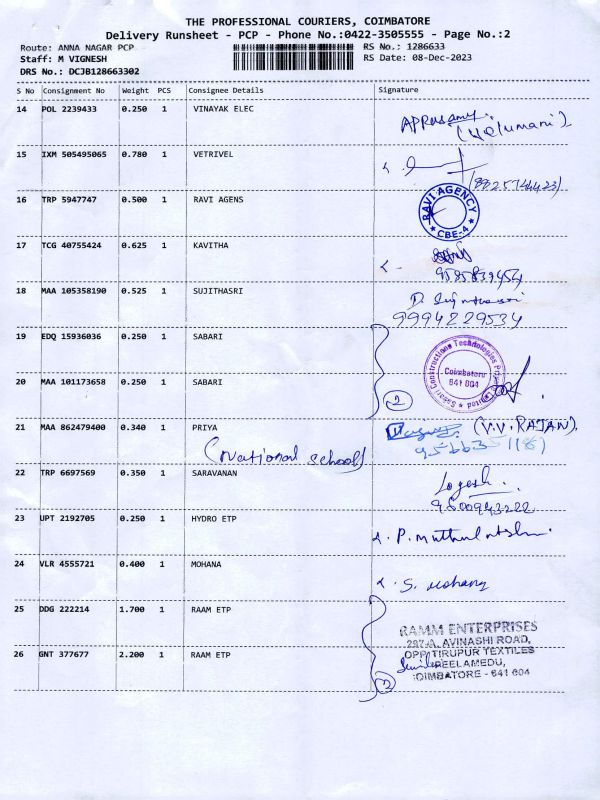 THE PROFESSIONAL COURIERS, COIMBATORE
Delivery Runsheet - PCP - Phone No.:0422-3505555 - Page No.:2
Route: ANNA NAGAR PCP RS No.: 1286633
Staff: M VIGNESH RS Date: 08-Dec-2023
DRS No.: DCJB128663302
S No Consignment No Weight PCS Consignee Details Signature
14 POL 2239433 0.250 1 VINAYAK ELEC
15 IXM 505495065 0.780 1 VETRIVEL
16 TRP 5947747 0.500 1 RAVI AGENS
RAVI AGENCY
* CBE-4 *
17 TCG 40755424 0.625 1 KAVITHA
18 MAA 105358190 0.525 1 SUJITHASRI
9994229534
19 EDQ 15936036 0.250 1 SABARI
Coimbatore
641 004
20 MAA 101173658 0.250 1 SABARI
2
21 MAA 862479400 0.340 1 PRIYA (V.V. RAJAN).
(National school)
22 TRP 6697569 0.350 1 SARAVANAN Logesh.
9500943222
23 UPT 2192705 0.250 1 HYDRO ETP
24 VLR 4555721 0.400 1 MOHANA S. Mohana
25 DDG 222214 1.700 1 RAAM ETP
RAMM ENTERPRISES
287-A, AVINASHI ROAD,
OPP. TIRUPUR TEXTILES
PEELAMEDU,
COIMBATORE - 641 004
26 GNT 377677 2.200 1 RAAM ETP
2